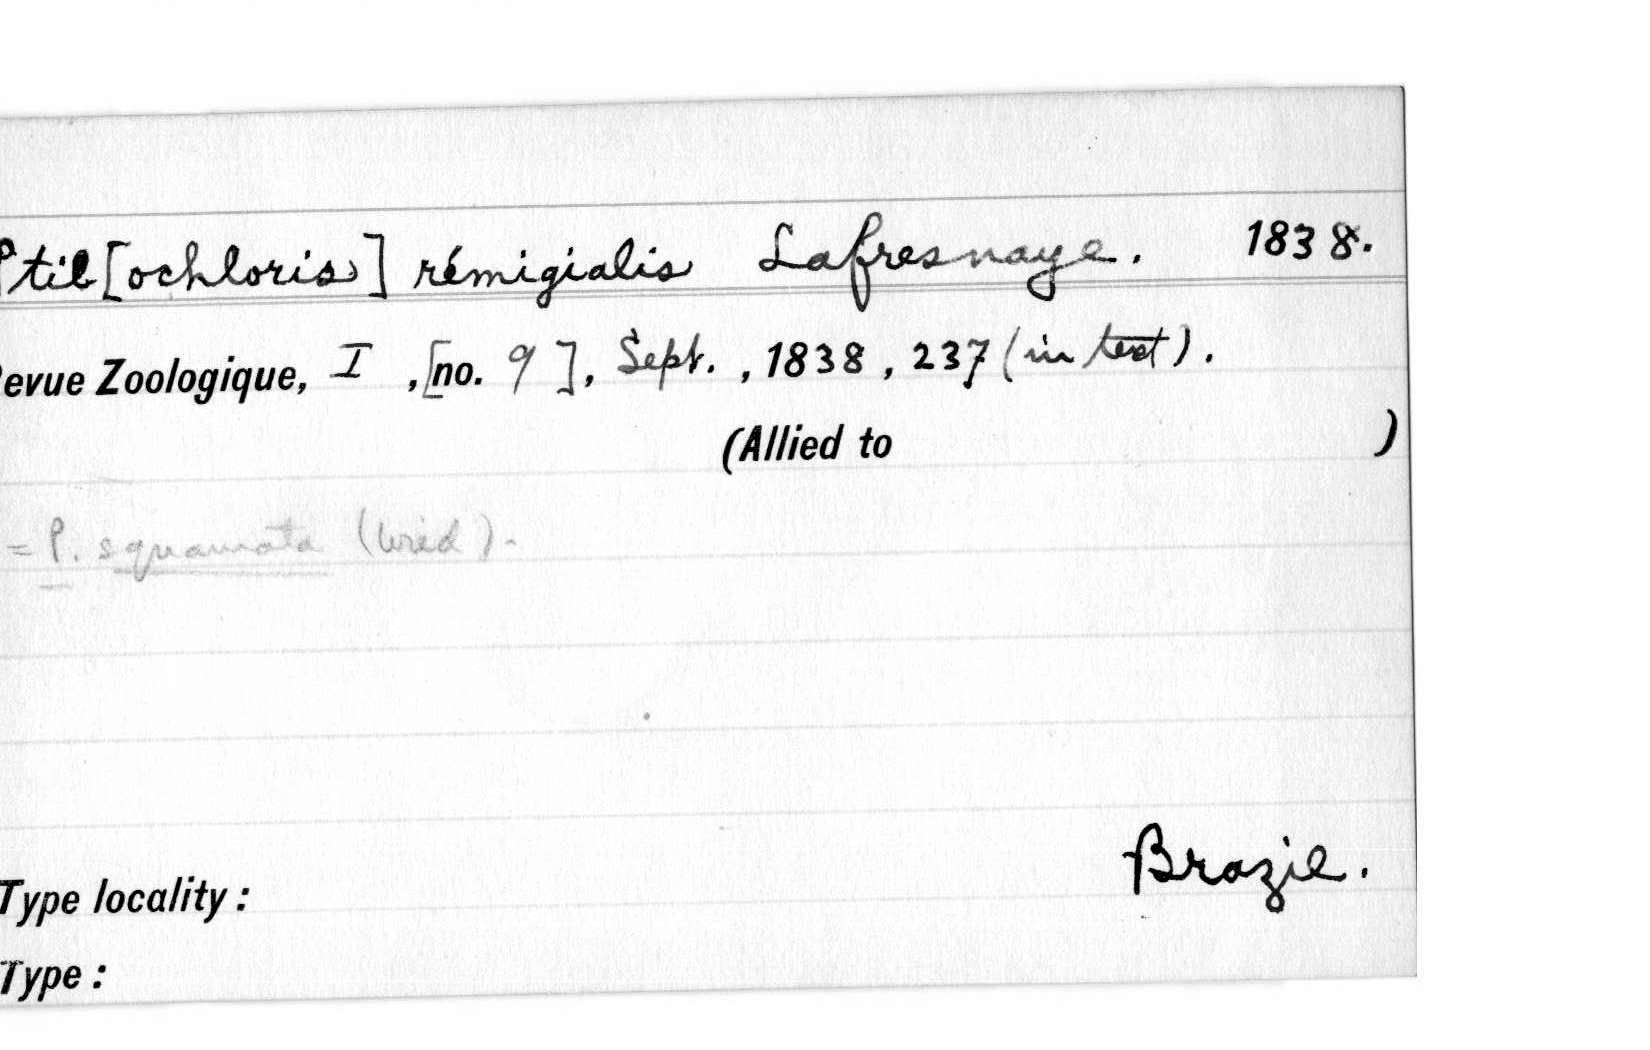 Ptil[ochloris] rémigialis Lafresnaye. 1838.
Revue Zoologique, I, [no. 9], Sept., 1838, 237 (in text).
(Allied to )
= P. squamata (Wied).
Type locality: Brazil.
Type: